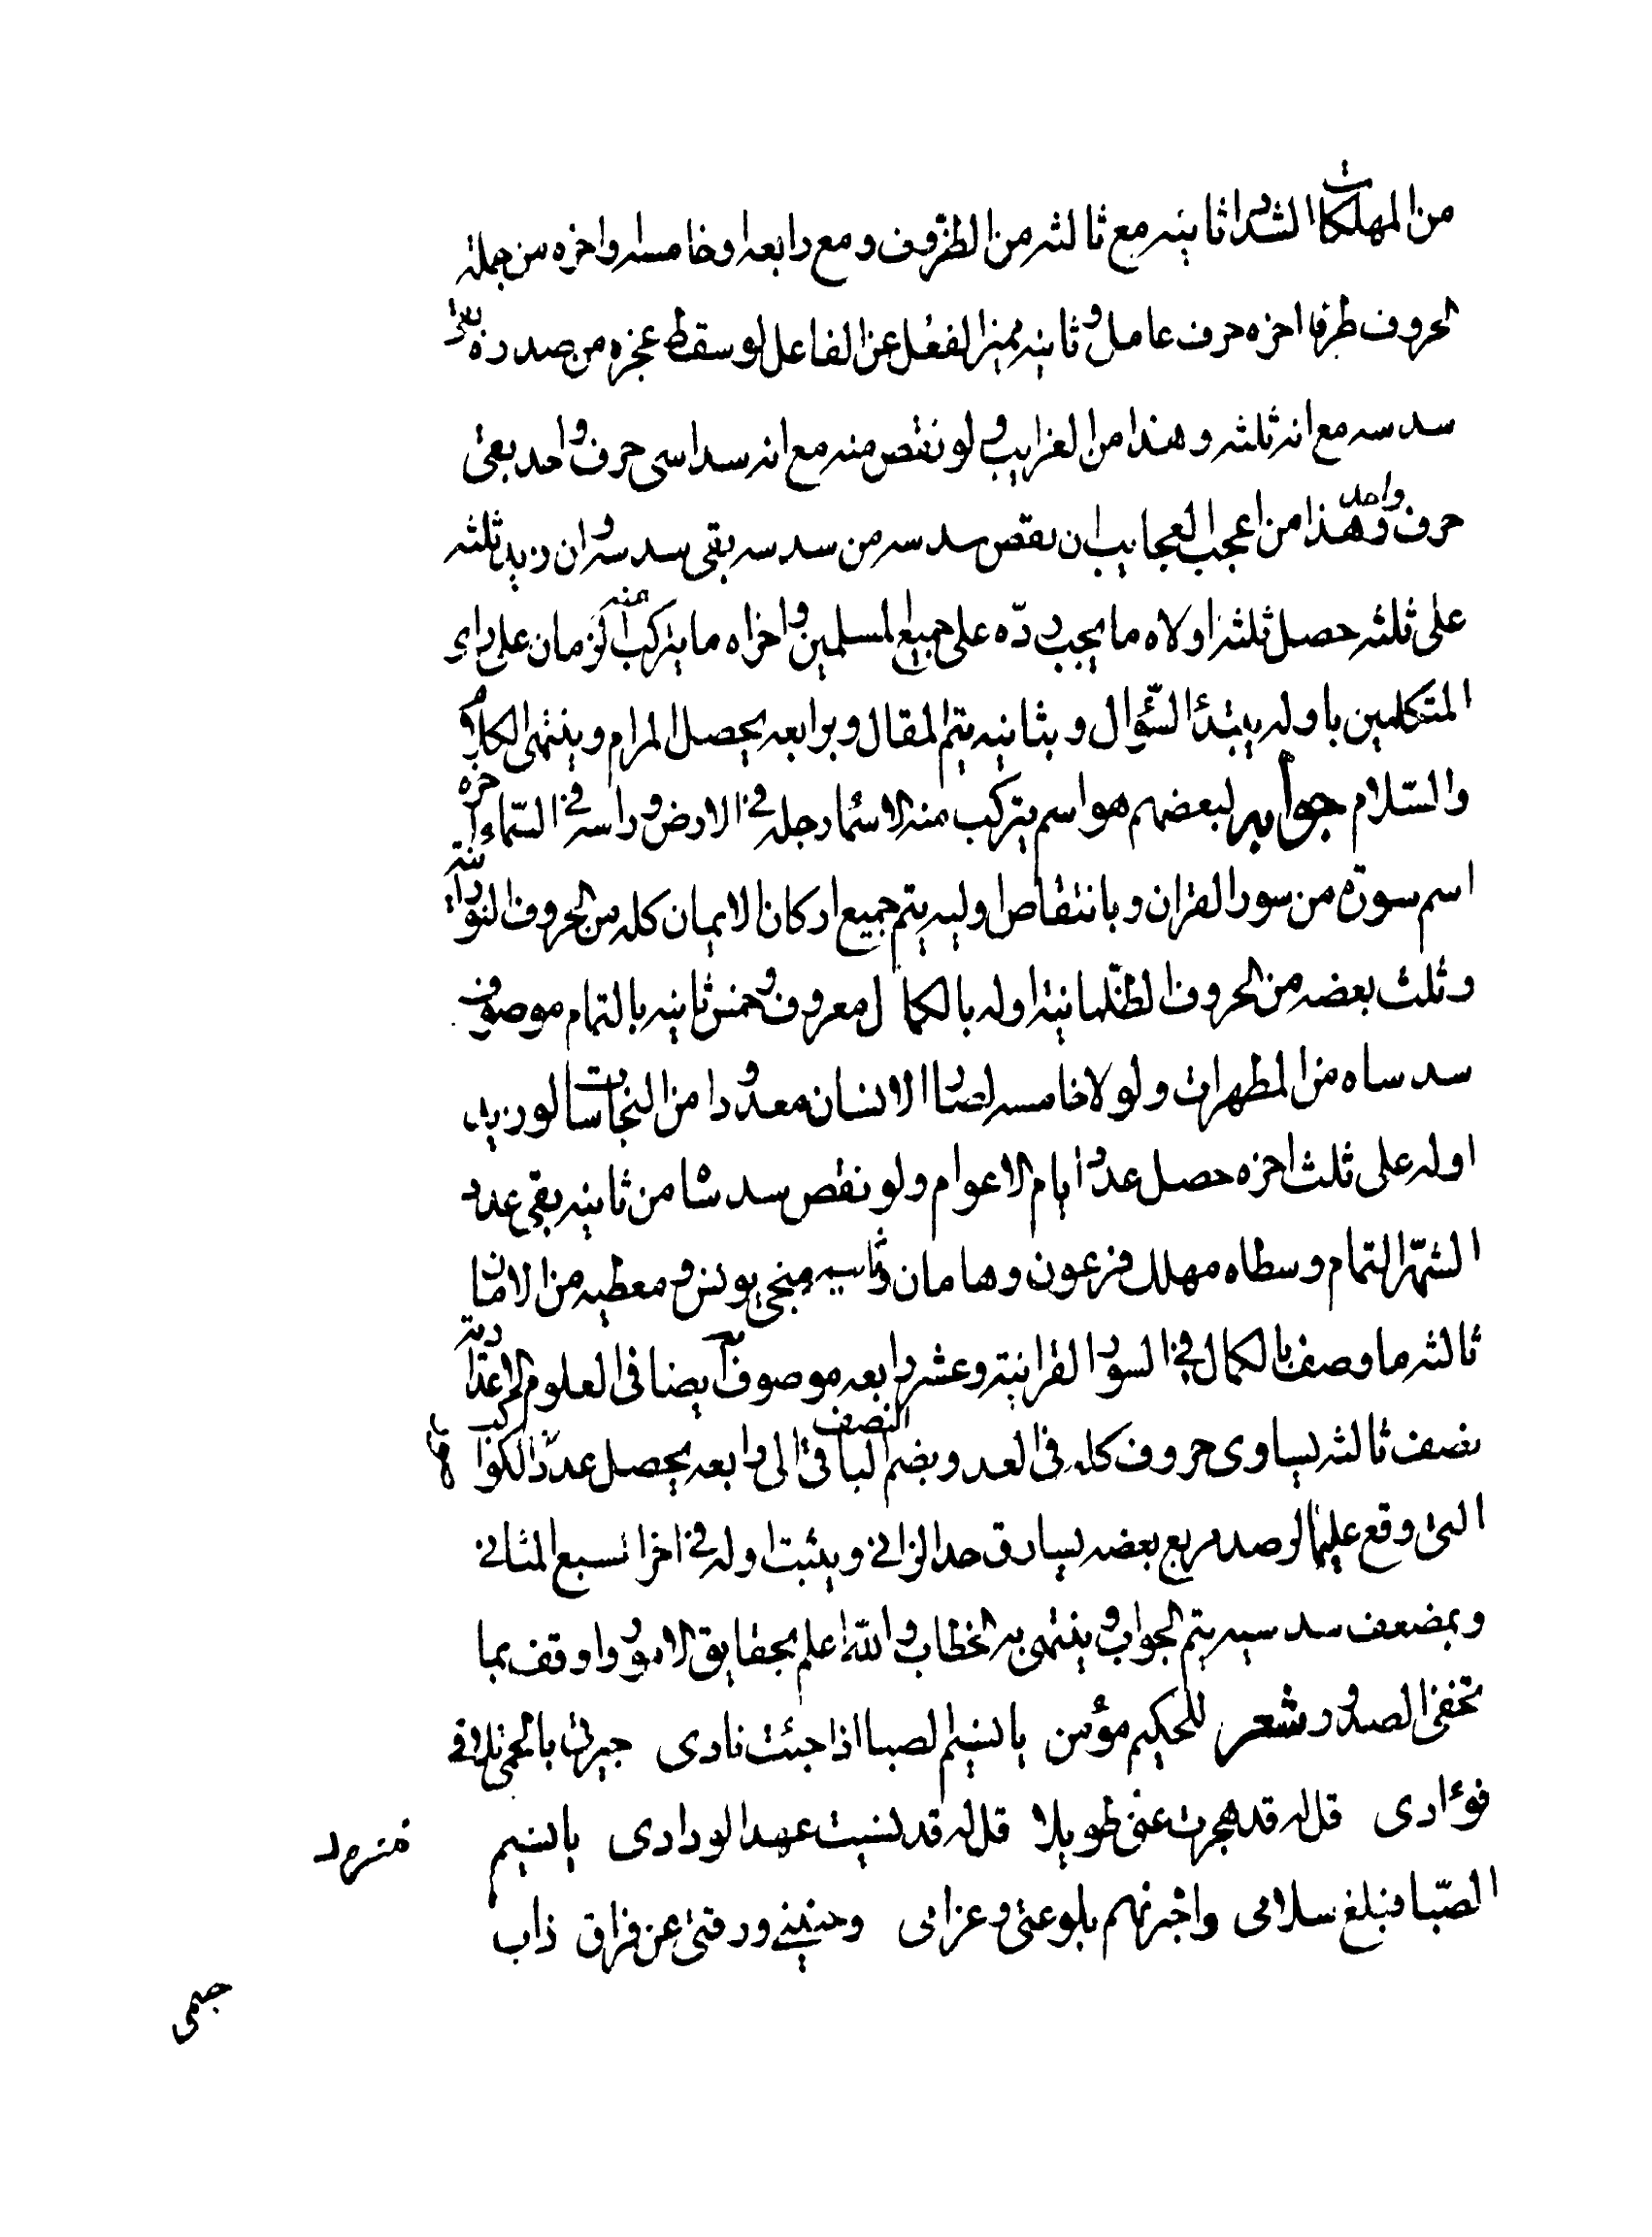 من المهلكات الشداد ثانيه مع ثالثه من الظروف ومع رابعه او خامسه واخره من جملة
الحروف طرفا اخره حرف عامل وثانيه يميز الفعل عن الفاعل لو سقط عجزه من صدره
سدسه مع انه ثلثه وهذا من الغرايب ولو نقص منه مع انه سداسى حرف واحد بقى
حرف واحد وهذا من اعجب العجايب ان نقص سدسه من سدسه بقى سدسه وان زيد ثلثه
على ثلثه حصل ثلثه اولاه ما يجب رده على جميع المسلمين واخراه ما يتركب منه الزمان على راى
المتكلمين باوله يبتدأ السّؤال وبثانيه يتم المقال وبرابعه يحصل المرام وينتهى الكلام
والسّلام جوابه لبعضهم هو اسم يتركب منه الاسماء رجله فى الارض وراسه فى السّماء اخره
اسم سورة من سور القران وبانتقاص اوليه يتم جميع اركان الايمان كله من الحروف النورانية
وثلث بعضه من الحروف الظلمانية اوله بالكمال معروف وخمس ثانيه بالتمام موصوف
سدساه من المطهرات ولولا خامسه لصار الانسان معدودا من النجاسات لو زيد
اوله على ثلث اخره حصل عدد ايام الاعوام ولو نقص سدسا من ثانيه بقى عدد
الشهر التمام وسطاه مهلك فرعون وهامان منجى يونس ومعطيه من الامان
ثالثه ما وصف بالكمال فى السور القرانية وعشر رابعه موصوف به ايضا فى العلوم الاعدادية
نصف ثالثه يساوى حروف كله فى العدد وبضم النصف الباقى الى رابعه يحصل عدد الكواكب
التى وقع عليها الرصد مربع بعضه يساوق حد الزانى ويثبت اوله فى اخر السبع المثانى
وبمضعف سدسيه يتم الجواب وينتهى به الخطاب والله اعلم بحقايق الامور واوقف بما
تخفى الصدور شعر للحكيم مؤمن يا نسيم الصبا اذا جئت نادى جيرتى بالحمى
فؤادى قل له قد هجرت عنى طويلا قل له قد نسيت عهد الودادى يا نسيم
الصّبا فبلغ سلامى واخبرنهم بلوعتى وغرامى وحنينى ورقتى عن فراق ذاب
جسمى